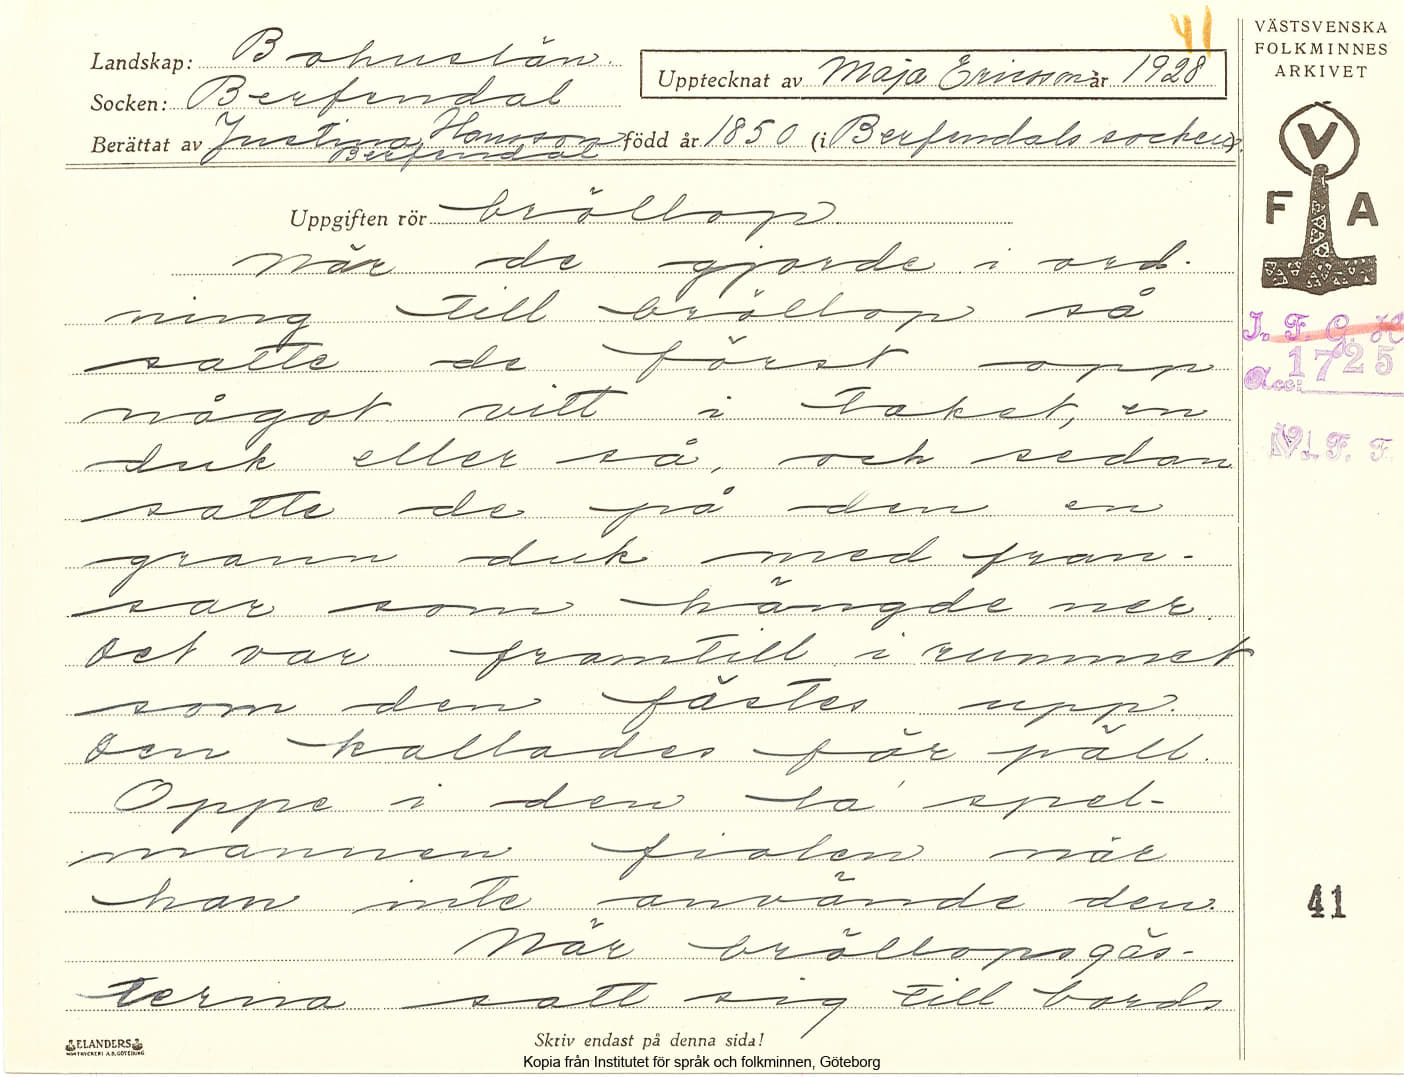 41
VÄSTSVENSKA
FOLKMINNES
ARKIVET
Landskap: Bohuslän.
Upptecknat av Maja Ericson år 1928
Socken: Berfendal
Berättat av Justina Hansson född år 1850 (i Berfendals socken).
Berfendal
V
F A
Uppgiften rör bröllop
När de gjorde i ord-
ning till bröllop så
satte de först opp
något vitt i taket, en
duk eller så, och sedan
satte de på den en
grann duk med fran-
sar som hängde ner.
Det var framtill i rummet
som den fästes upp.
Den kallades för päll.
Oppe i den la' spel-
mannen fiolen när
han inte använde den.
När bröllopsgäs-
terna satt sig till bords
I. F. G. H.
Acc: 1725
V. F. F.
41
ELANDERS
BOKTRYCKERI A.B. GÖTEBORG
Skriv endast på denna sida!
Kopia från Institutet för språk och folkminnen, Göteborg